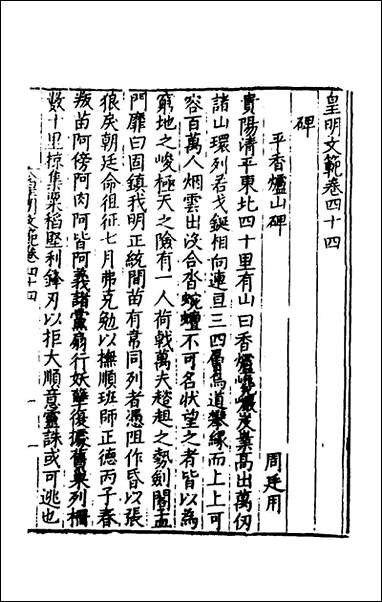 皇明文範卷四十四
碑
平香爐山碑
周廷用
貴陽清平東北四十里有山曰香爐巉巖岌嶪高出萬仞
諸山環列若戈鋋相向連亘三四層鳥道攀緣而上上可
容百萬人烟雲出沒合沓蜿蟺不可名狀望之者皆以為
窮地之峻極天之險有一人荷戟萬夫趑趄之勢劍閣孟
門靡曰固鎮我明正統間苗有韋同列者憑阻作昏以張
狼戾朝廷命徂征七月弗克勉以撫順班師正德丙子春
叛苗阿傍阿肉阿皆阿義諸黨扇行妖孽復據舊巢列柵
數十里掠集粟稻堅利鋒刃以拒大順意靈誅或可逃也
皇明文範卷四十四
一